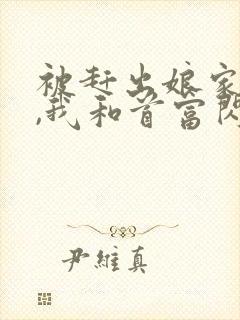 被赶出娘家
,我和首富闪
尹維真